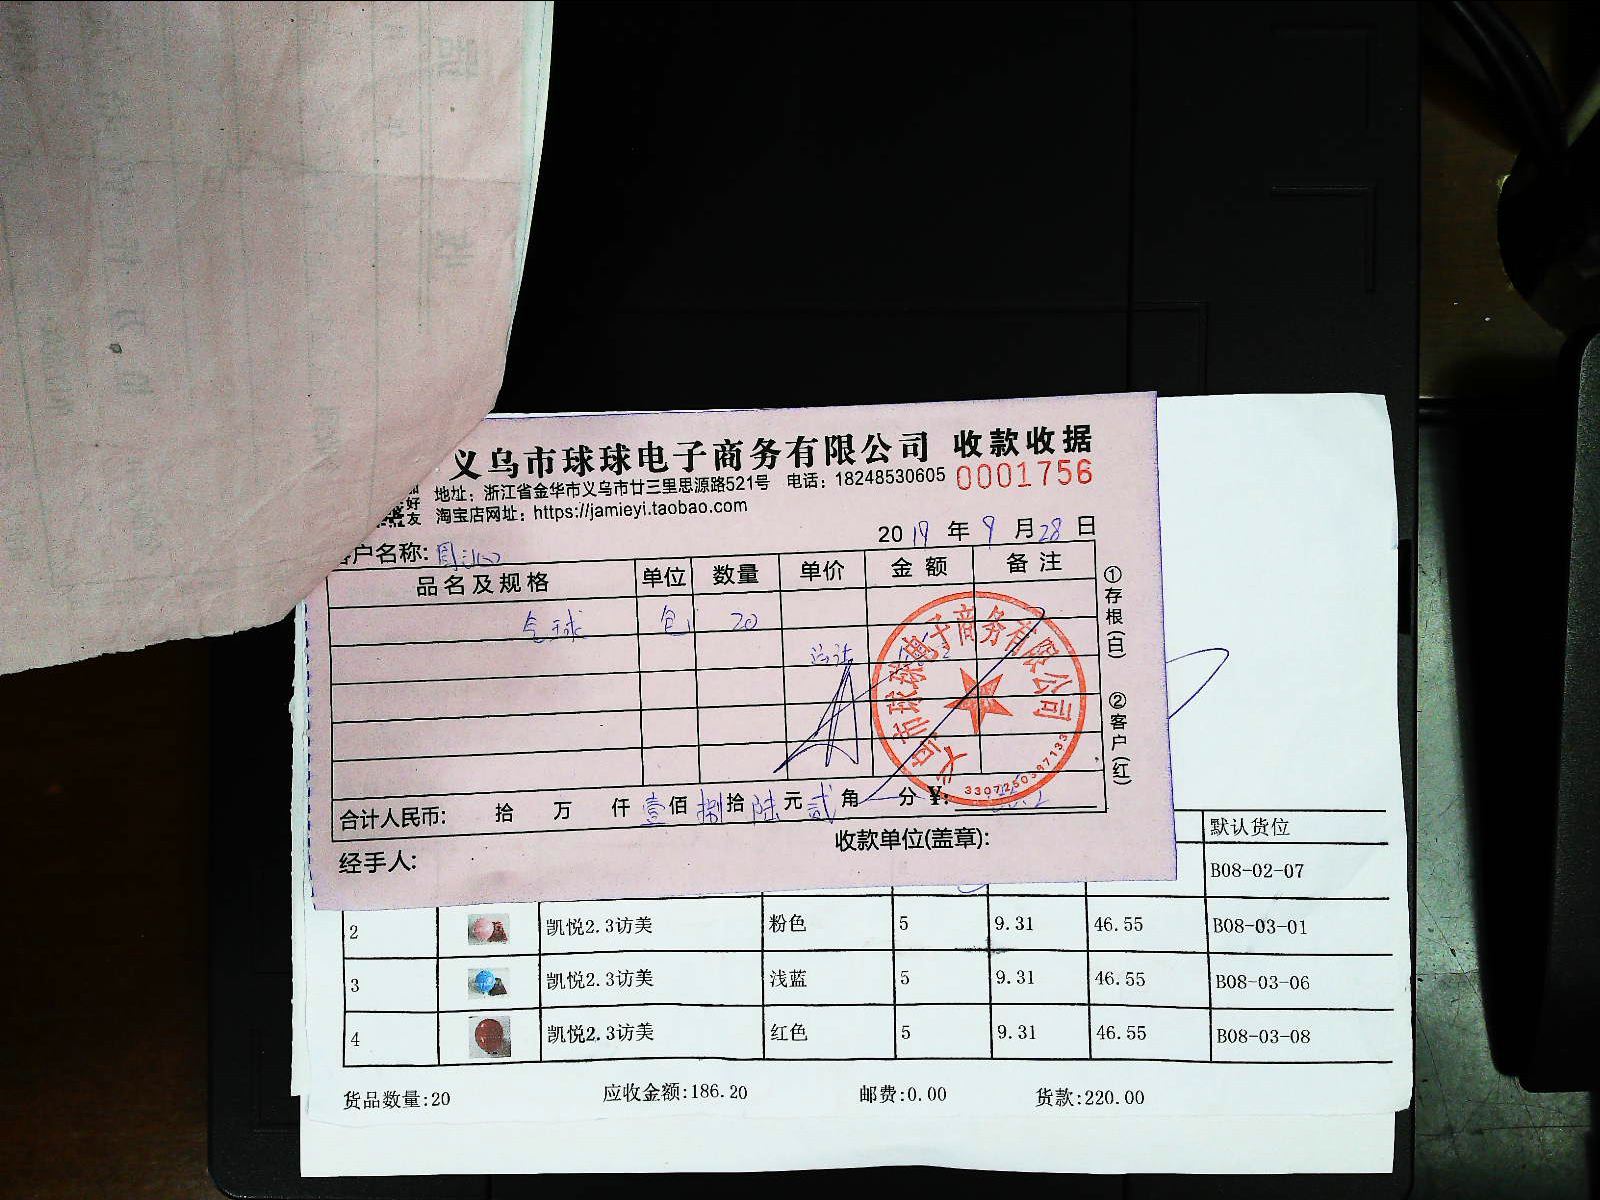 义乌市球球电子商务有限公司 收款收据
地址：浙江省金华市义乌市廿三里思源路521号 电话：18248530605 0001756
好友 淘宝店网址：https://jamieyi.taobao.com
2019 年 9 月 28 日
户名称:
品名及规格 单位 数量 单价 金额 备注
气球 包 20
①存根(白) ②客户(红)
义乌市球球电子商务有限公司
合计人民币: 拾 万 仟 壹 佰 捌 拾 陆 元 贰 角 分 ¥:
收款单位(盖章):
经手人:
默认货位
B08-02-07
2 凯悦2.3访美 粉色 5 9.31 46.55 B08-03-01
3 凯悦2.3访美 浅蓝 5 9.31 46.55 B08-03-06
4 凯悦2.3访美 红色 5 9.31 46.55 B08-03-08
货品数量:20 应收金额:186.20 邮费:0.00 货款:220.00